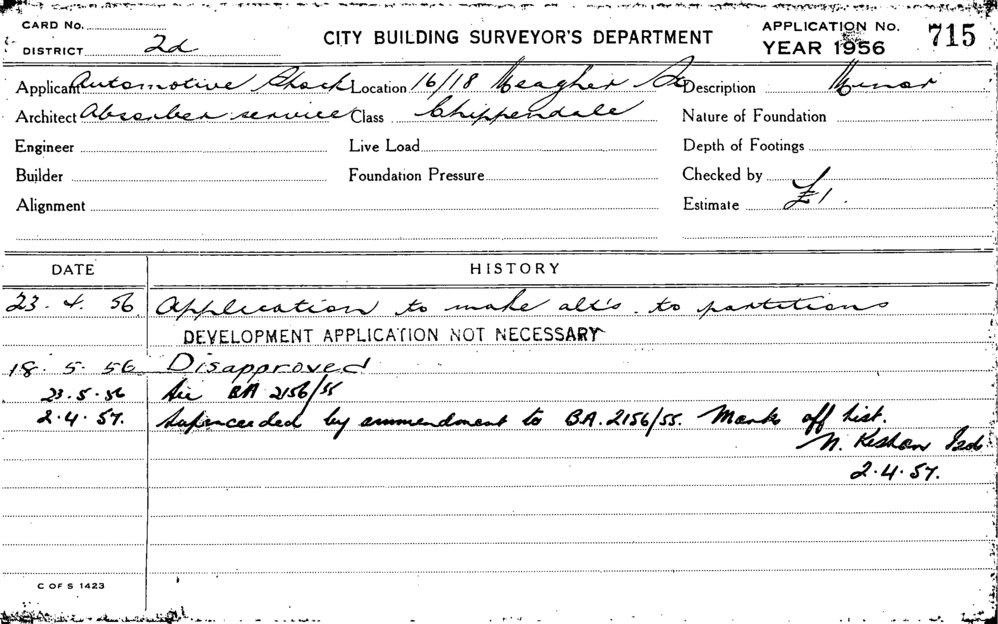 CARD No.
DISTRICT 2d
CITY BUILDING SURVEYOR'S DEPARTMENT
APPLICATION No. 715
YEAR 1956
Applicant Automotive Shock Location 16/18 Meagher St Description Minor
Architect Absorber service Class Chippendale Nature of Foundation
Engineer Live Load Depth of Footings
Builder Foundation Pressure Checked by
Alignment Estimate £1.
DATE HISTORY
23.4.56 Application to make alt's. to partitions
DEVELOPMENT APPLICATION NOT NECESSARY
18.5.56 Disapproved
23.5.56 BA 2156/55
2.4.57. Superceeded by ammendment to B.A. 2156/55. Mark off list.
N.
2.4.57.
C OF S 1423